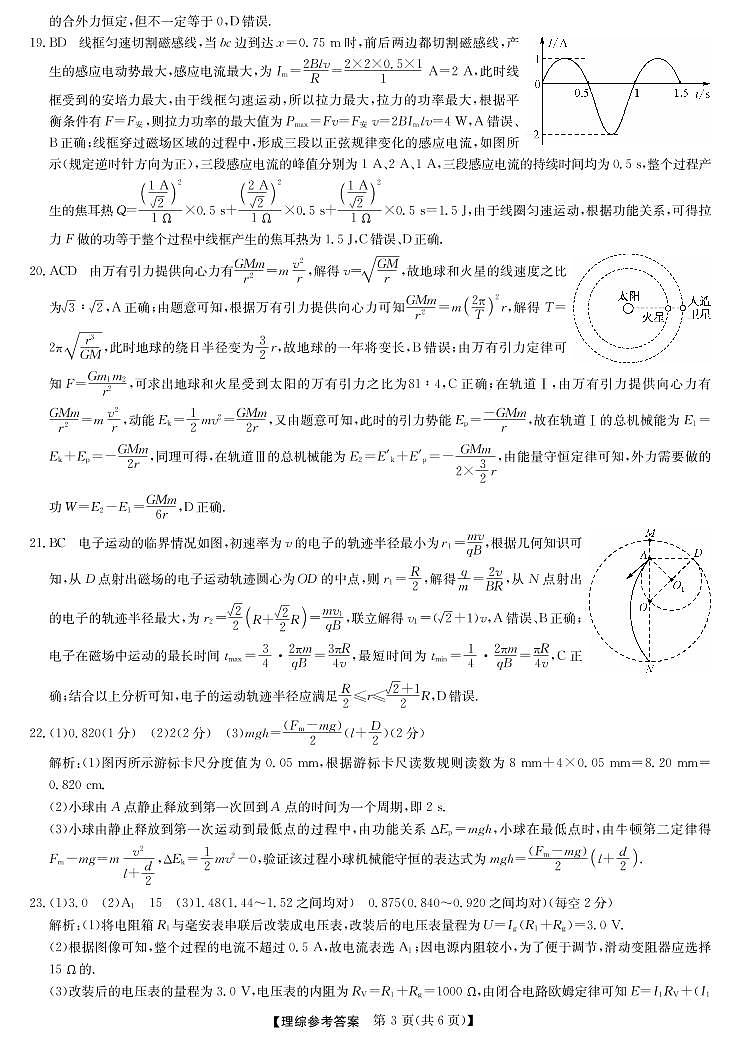 的合外力恒定,但不一定等于0,D错误.
19. BD 线框匀速切割磁感线,当 bc 边到达 x=0.75 m时,前后两边都切割磁感线,产
生的感应电动势最大,感应电流最大,为 Iₘ=2Blv/R=2×2×0.5×1/1 A=2 A,此时线
框受到的安培力最大,由于线框匀速运动,所以拉力最大,拉力的功率最大,根据平
衡条件有 F=F安,则拉力功率的最大值为 Pmax=Fv=F安 v=2BIₘlv=4 W,A错误、
B正确;线框穿过磁场区域的过程中,形成三段以正弦规律变化的感应电流,如图所
示(规定逆时针方向为正),三段感应电流的峰值分别为1 A、2 A、1 A,三段感应电流的持续时间均为0.5 s,整个过程产
生的焦耳热 Q=(1 A/√2)²/1 Ω×0.5 s+(2 A/√2)²/1 Ω×0.5 s+(1 A/√2)²/1 Ω×0.5 s=1.5 J,由于线圈匀速运动,根据功能关系,可得拉
力 F 做的功等于整个过程中线框产生的焦耳热为1.5 J,C错误、D正确.
I/A
1
0
0.5
1
1.5 t/s
2
20. ACD 由万有引力提供向心力有GMm/r²=m v²/r,解得 v=√(GM/r),故地球和火星的线速度之比
为√3∶√2,A正确;由题意可知,根据万有引力提供向心力可知GMm/r²=m(2π/T)²r,解得 T=
2π√(r³/GM),此时地球的绕日半径变为3/2 r,故地球的一年将变长,B错误;由万有引力定律可
知 F=Gm₁m₂/r²,可求出地球和火星受到太阳的万有引力之比为81∶4,C正确;在轨道Ⅰ,由万有引力提供向心力有
GMm/r²=m v²/r,动能 Eₖ=1/2 mv²=GMm/2r,又由题意可知,此时的引力势能 Eₚ=−GMm/r,故在轨道Ⅰ的总机械能为 E₁=
Eₖ+Eₚ=−GMm/2r,同理可得,在轨道Ⅲ的总机械能为 E₂=E′ₖ+E′ₚ=−GMm/(2×3/2 r),由能量守恒定律可知,外力需要做的
功 W=E₂−E₁=GMm/6r,D正确.
太阳
火星
人造
卫星
21. BC 电子运动的临界情况如图,初速率为 v 的电子的轨迹半径最小为 r₁=mv/qB,根据几何知识可
知,从 D 点射出磁场的电子运动轨迹圆心为 OD 的中点,则 r₁=R/2,解得 q/m=2v/BR,从 N 点射出
的电子的轨迹半径最大,为 r₂=√2/2(R+√2/2 R)=mv₁/qB,联立解得 v₁=(√2+1)v,A错误、B正确;
电子在磁场中运动的最长时间 tmax=3/4·2πm/qB=3πR/4v,最短时间为 tmin=1/4·2πm/qB=πR/4v,C正
确;结合以上分析可知,电子的运动轨迹半径应满足R/2≤r≤(√2+1)/2 R,D错误.
M
A
D
O₁
O
N
22. (1)0.820(1分) (2)2(2分) (3)mgh=(Fₘ−mg)/2(l+D/2)(2分)
解析:(1)图丙所示游标卡尺分度值为0.05 mm,根据游标卡尺读数规则读数为8 mm+4×0.05 mm=8.20 mm=
0.820 cm.
(2)小球由 A 点静止释放到第一次回到 A 点的时间为一个周期,即2 s.
(3)小球由静止释放到第一次运动到最低点的过程中,由功能关系 ΔEₚ=mgh,小球在最低点时,由牛顿第二定律得
Fₘ−mg=m v²/(l+d/2),ΔEₖ=1/2 mv²−0,验证该过程小球机械能守恒的表达式为 mgh=(Fₘ−mg)/2(l+d/2).
23. (1)3.0 (2)A₁ 15 (3)1.48(1.44~1.52之间均对) 0.875(0.840~0.920之间均对)(每空2分)
解析:(1)将电阻箱 R₁与毫安表串联后改装成电压表,改装后的电压表量程为 U=Ig(R₁+Rg)=3.0 V.
(2)根据图像可知,整个过程的电流不超过0.5 A,故电流表选 A₁;因电源内阻较小,为了便于调节,滑动变阻器应选择
15 Ω的.
(3)改装后的电压表的量程为3.0 V,电压表的内阻为 RV=R₁+Rg=1000 Ω,由闭合电路欧姆定律可知 E=I₁RV+(I₁
【理综参考答案 第3页(共6页)】